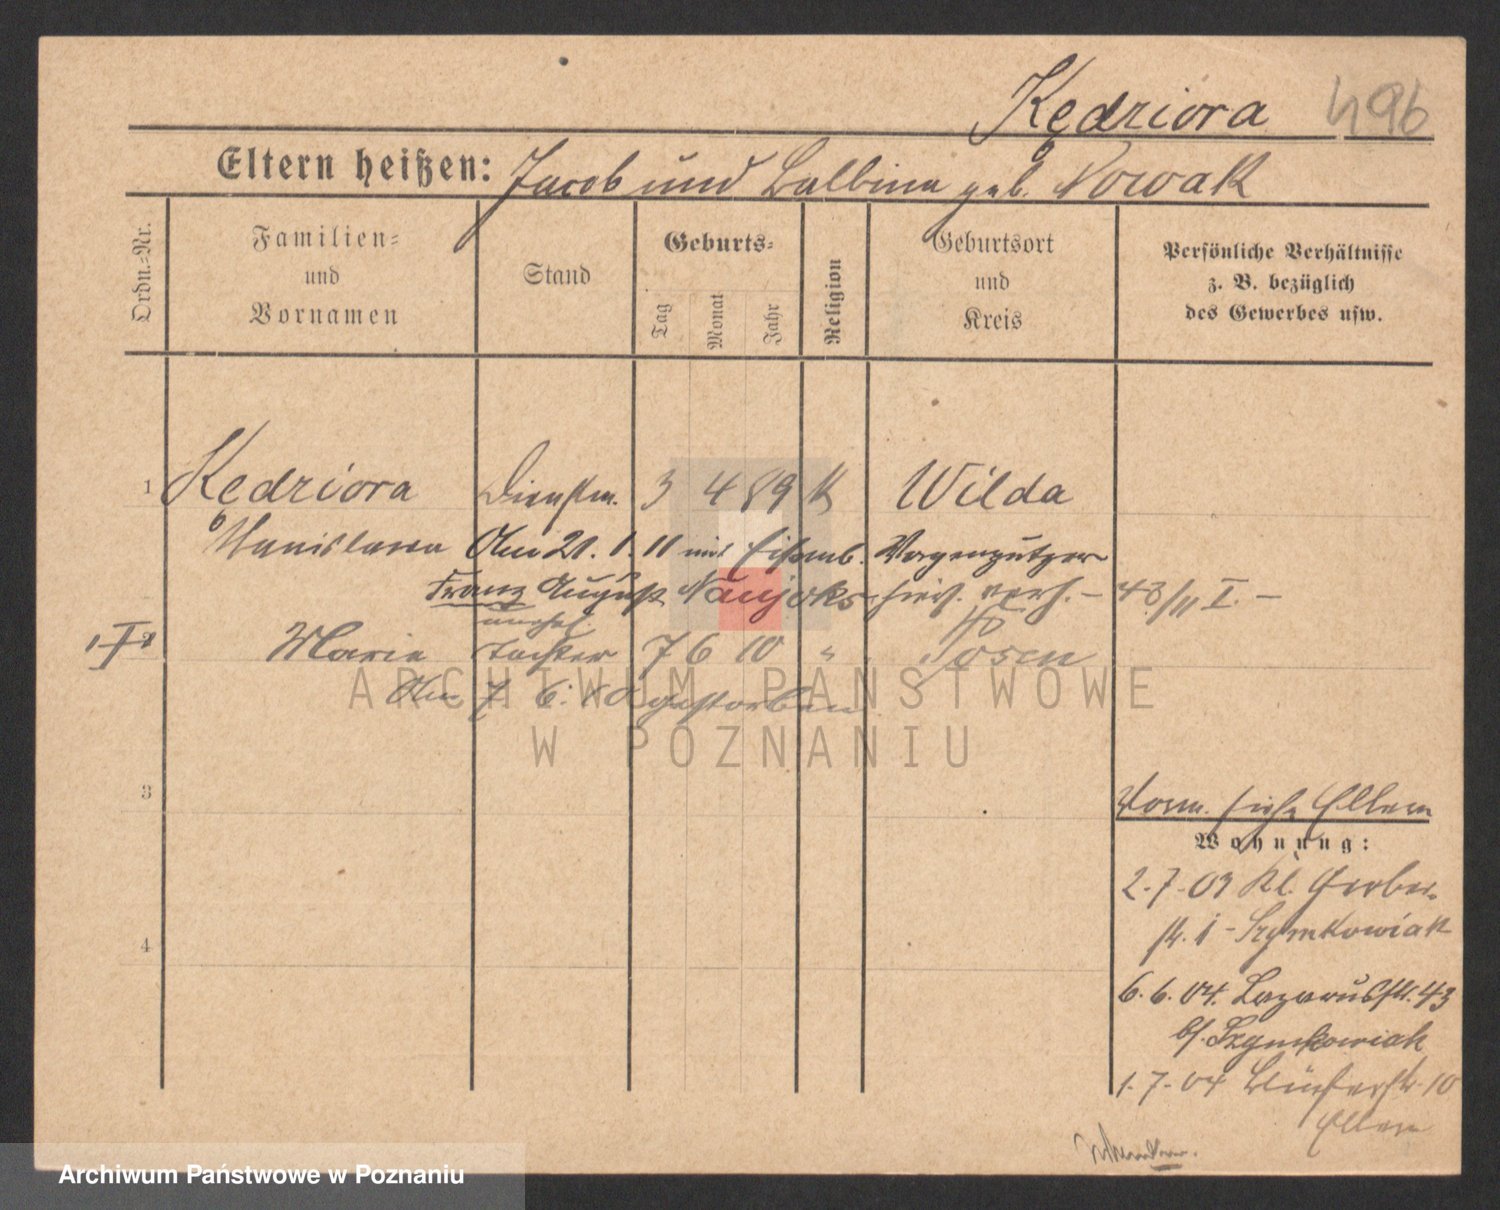 Kędziora 496
Eltern heißen: Jacob und Balbina geb. Nowak
Ordn.-Nr.
Familien- und Vornamen
Stand
Geburts-
Tag
Monat
Jahr
Religion
Geburtsort und Kreis
Persönliche Verhältnisse z. B. bezüglich des Gewerbes usw.
1 Kędziora Dienstm. 3 4 89 K Wilda
Stanislawa Am 21. 1. 11 mit Eisenb. Wagenputzer
Franz August Naujoks hier. verh. – 43/11 I. –
unehel.
Maria Tochter 7 6 10 " Posen
Am 7. 6. 10 gestorben
3
4
Vorm. siehe Eltern
Wohnung:
2.7.03 Kl. Gerber-
str. 1 - Szymkowiak
6.6.04. Lazarusstr. 43
b/. Szymkowiak
1.7.04 10
Eltern
ARCHIWUM PAŃSTWOWE
W POZNANIU
Archiwum Państwowe w Poznaniu